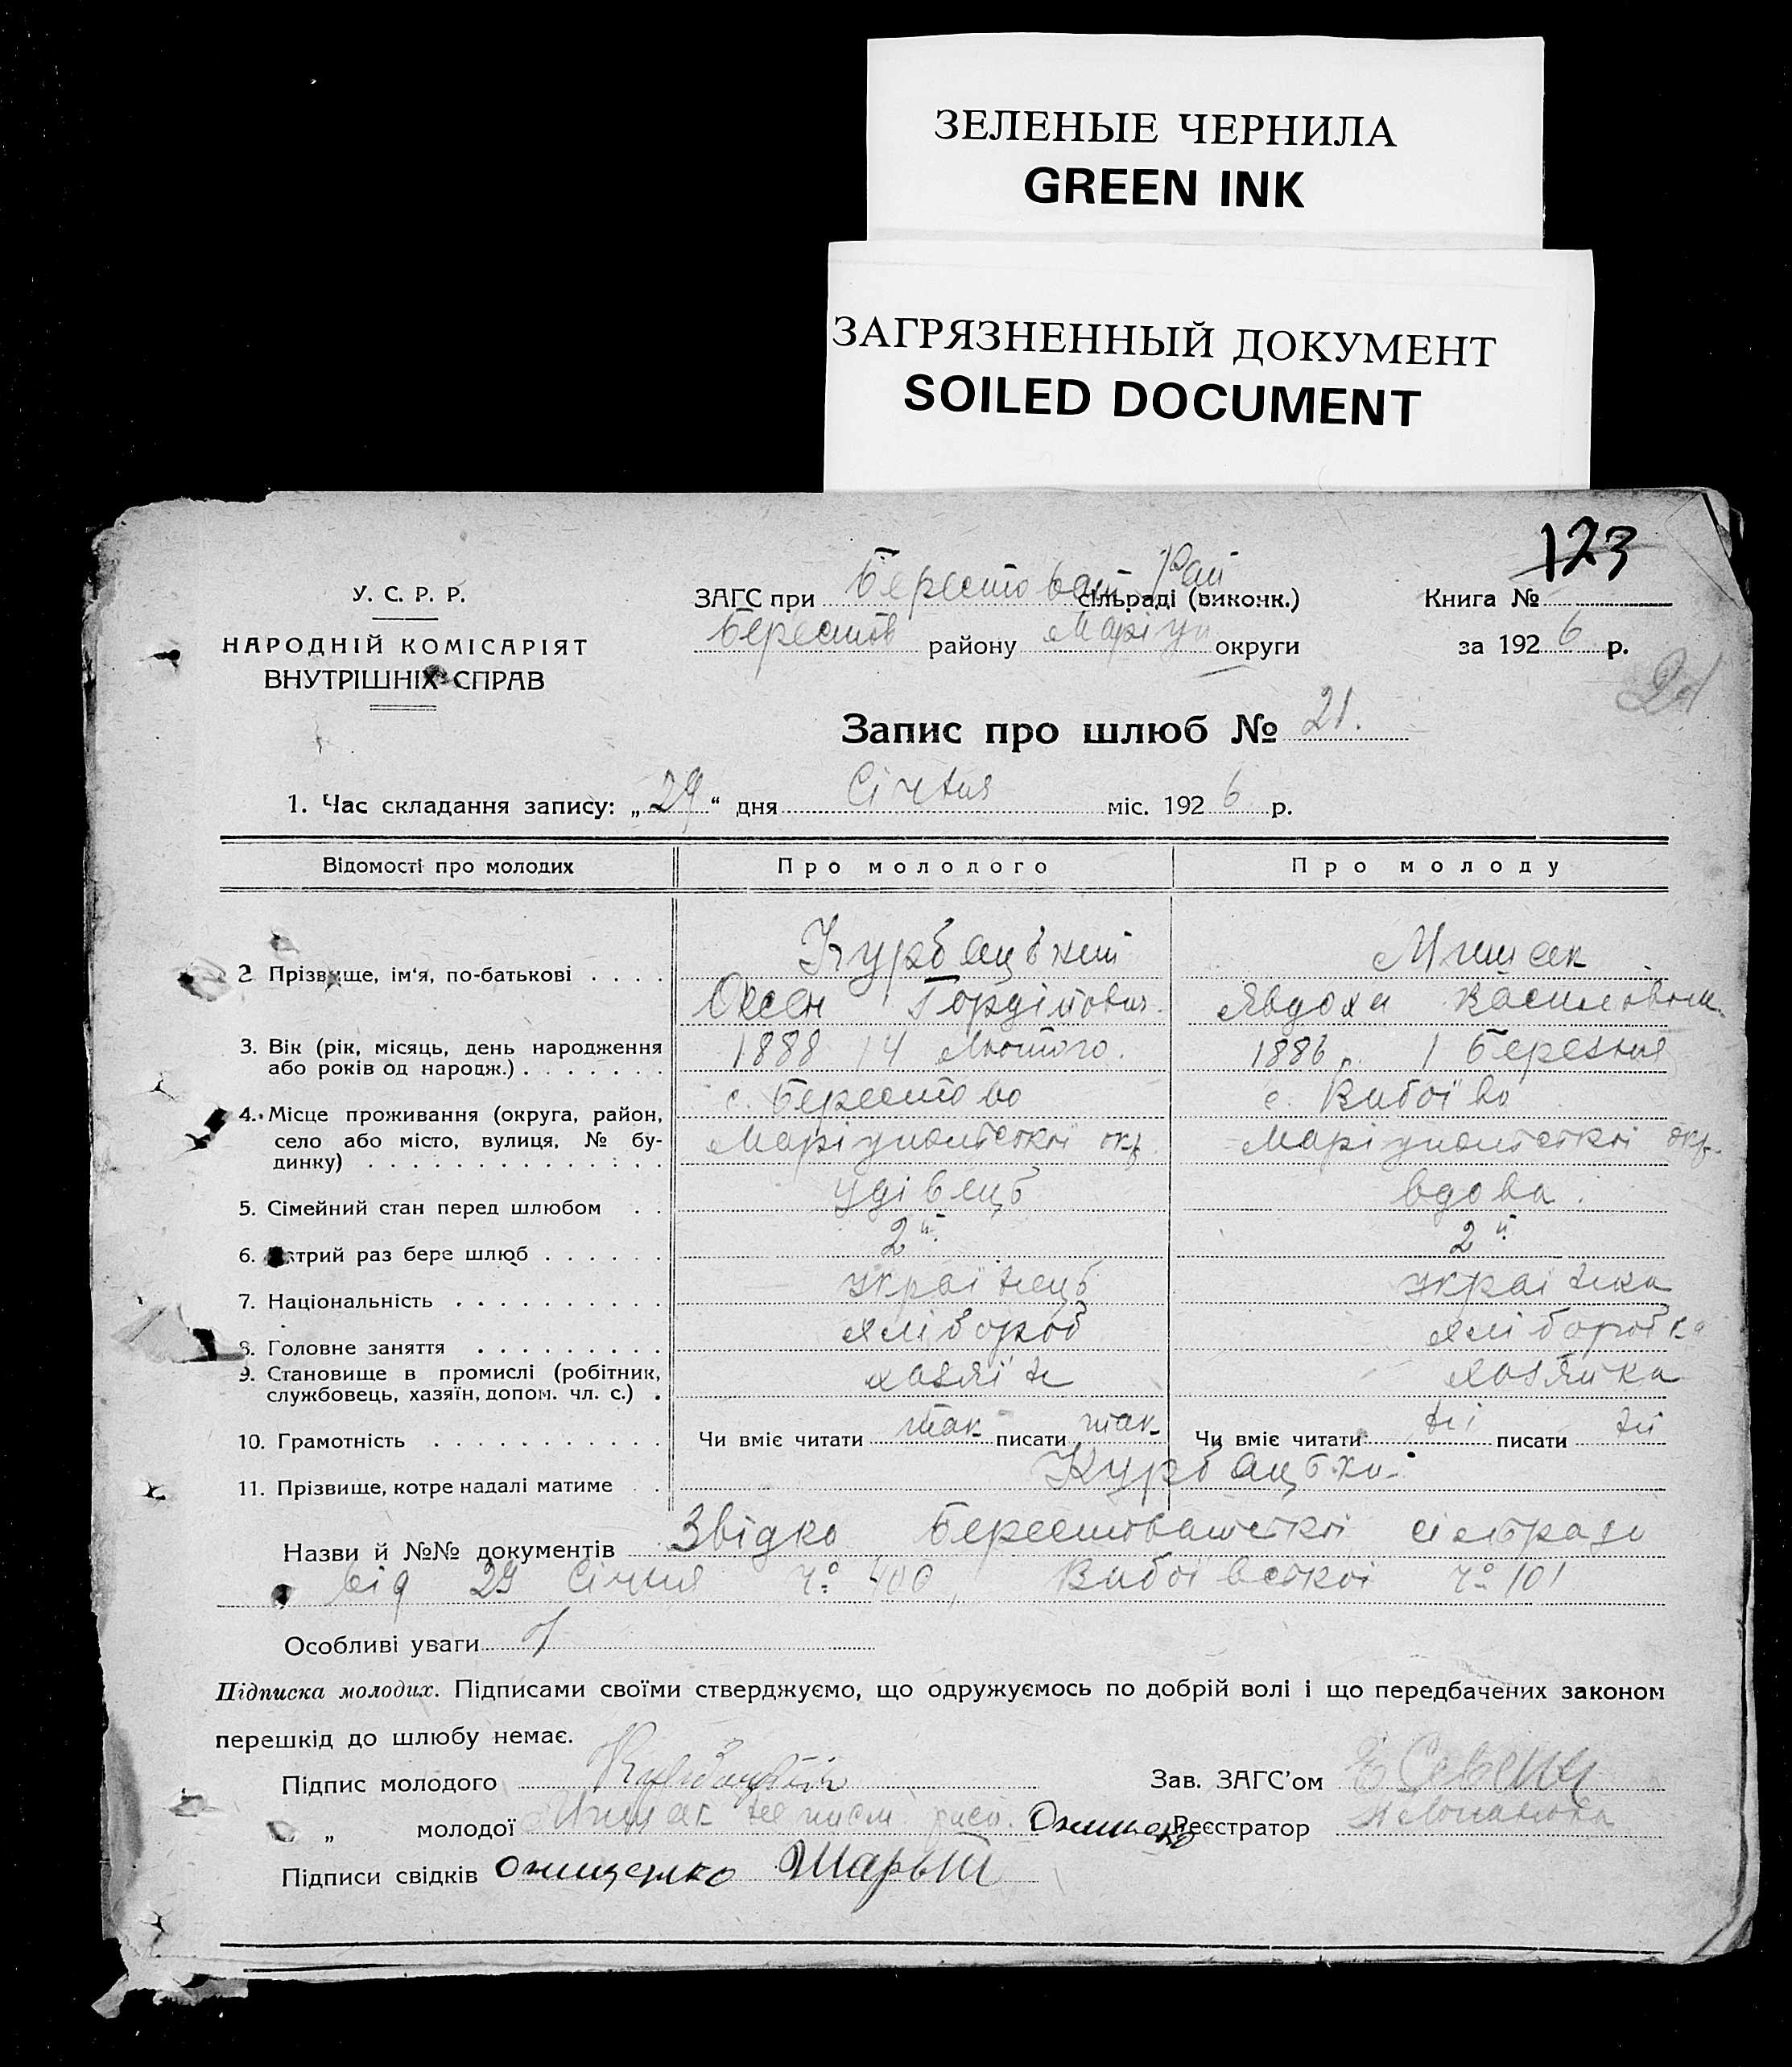 ЗЕЛЕНЫЕ ЧЕРНИЛА
GREEN INK
ЗАГРЯЗНЕННЫЙ ДОКУМЕНТ
SOILED DOCUMENT
123
У. С. Р. Р.
НАРОДНІЙ КОМІСАРІЯТ
ВНУТРІШНІХ СПРАВ
ЗАГС при Берестоват. Рай сільраді (виконк.)
Берестов району Маріуп округи
Книга №
за 1926 р.
21
Запис про шлюб № 21.
1. Час складання запису: „29“ дня Січня міс. 1926 р.
Відомості про молодих Про молодого Про молоду
2. Прізвище, ім‘я, по-батькові Курбацький
Оксен Гордійович Явдоха Василівна
3. Вік (рік, місяць, день народження або років од народж.) 1888 14 Лютого. 1886 р. 1 Березня
4. Місце проживання (округа, район, село або місто, вулиця, № будинку) с. Берестово
Маріупольської окр. Маріупольської окр.
5. Сімейний стан перед шлюбом удівець вдова.
6. Котрий раз бере шлюб 2й 2й
7. Національність Українець Українка
8. Головне заняття хлібороб хліборобка
9. Становище в промислі (робітник, службовець, хазяїн, допом. чл. с.) хазяїн хазяйка
10. Грамотність Чи вміє читати так писати так Чи вміє читати ні писати ні
11. Прізвище, котре надалі матиме Курбацьки
Назви й №№ документів Звідка Берестоватської сільради
від 29 Січня ч° 400, ч° 101
Особливі уваги
Підписка молодих. Підписами своїми стверджуємо, що одружуємось по добрій волі і що передбачених законом
перешкід до шлюбу немає.
Підпис молодого Курбацький Зав. ЗАГС’ом
„ молодої Реєстратор
Підписи свідків Онищенко